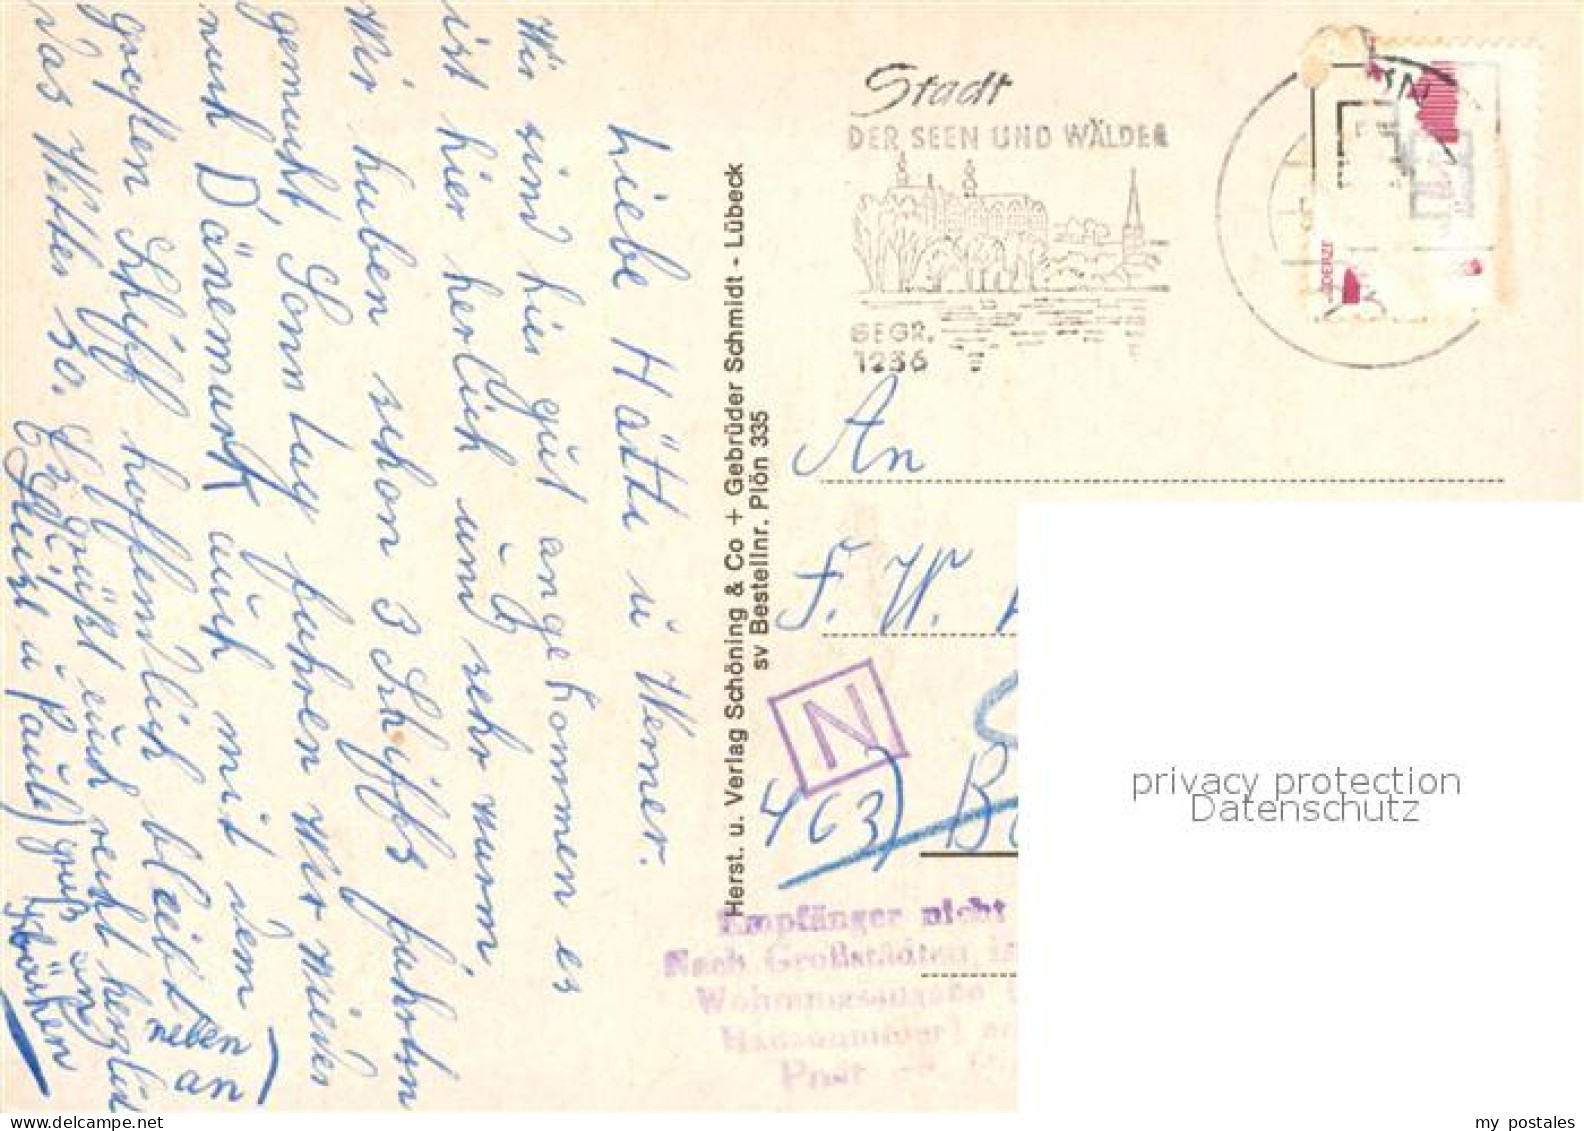 Liebe Hätti ü Werner.
Wir sind hier güt angekommen es
ist hier herlich ünd sehr warm,
Wir haben schon 3 Schiffs fahrten
gemacht, Sonntag fahren wir wieder
nach Dänemark aüch mit dem
großen Schiff hoffendlich bleibt
das Wetter so. Es grüßt eüch recht herzlich
ü Paüle
neben
an
grüß an
Herst. u. Verlag Schöning & Co + Gebrüder Schmidt - Lübeck
sv Bestellnr. Plön 335
Stadt
DER SEEN UND WÄLDER
BEGR.
1236
An
F. W.
N
463) Bo
Empfänger nicht
Nach Großstädten is
Wohnungsangabe (
Hausnummer) 
Post
privacy protection
Datenschutz
my postales
www.delcampe.net